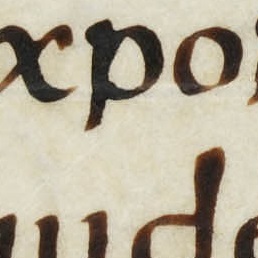 xpo
ude